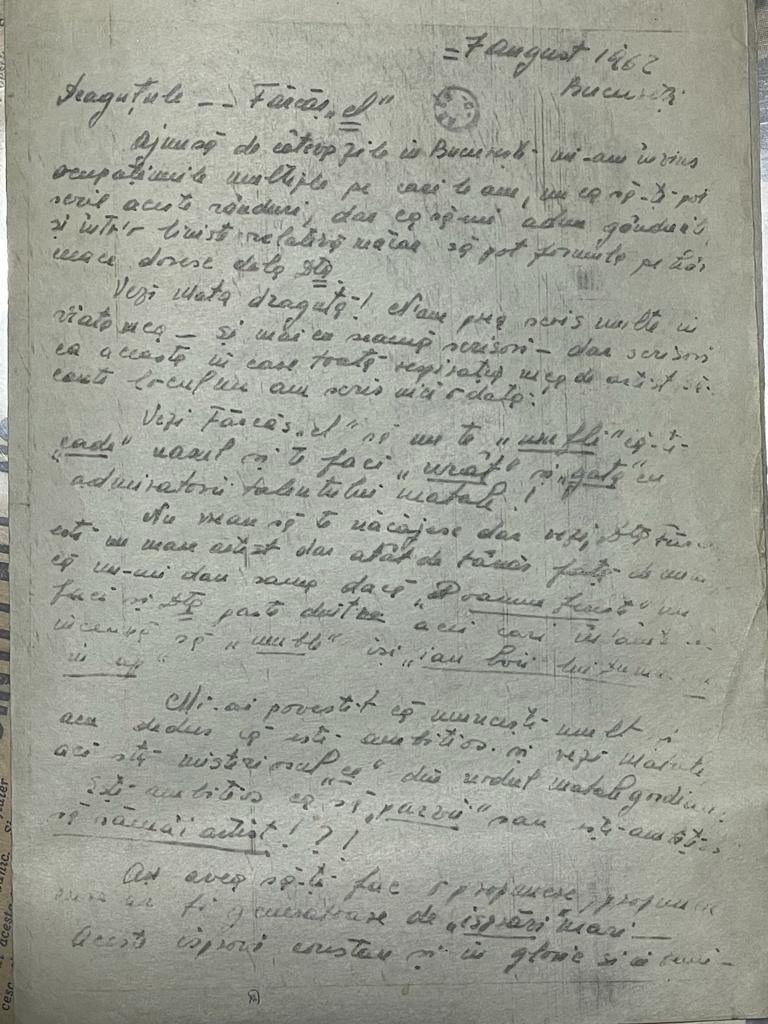 = 7 august 1962
București
Dragutule -- Fărcăș„el"
Ajunsă de câteva zile in București mi-am învins
ocupațiunile multiple pe cari le am, nu că să-ți pot
scrie aceste rânduri, dar că să-mi adun gândurile
si intr'o liniste relativă măcar să pot formula pe
ce doresc dela Dtă.
Vezi Mata dragută! N'am prea scris multe in
viața mea – si mai cu seamă scrisori – dar scrisori
ca aceasta in care toată respirația mea de artist să
locul nu am scris nici odată!
Vezi Fărcăș„el" să nu te „umfli" că-ti
„cade" nasul si te faci „urât" si „gata" cu
admiratorii talentului matale!
Nu vreau să te năcăjesc dar vezi, Dtă
ești un mare artist dar atât de tânăr față de mine,
că nu-mi dau sama dacă „Doamne ferește" nu
faci si Dtă parte dintre acei cari
incearcă să „umble" isi „iau boii lui
Mi-ai povestit că muncesti mult si
am dedus că esti ambitios. si vezi matale
aci stă misteriosul „că" din nodul matale gordian.
Esti ambitios că să „parvii" sau esti ambitios
să rămâi artist!?!
As avea să-ti fac o propunere, propunere
care ar fi generatoare de „isprăvi" mari –
Aceste isprăvi constau si in glorie si